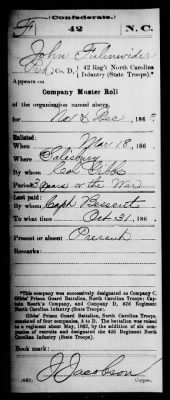 (Confederate.)
F 42 N.C.
John Fulenwider
Pvt, Co. D, 42 Reg't North Carolina
Infantry (State Troops).*
Appears on
Company Muster Roll
of the organization named above,
for Nov & Dec, 186
Enlisted:
When Mar 18, 186
Where Salisbury
By whom Col Gibbs
Period 3 years or the War
Last paid:
By whom Capt Bessent
To what time Oct 31, 186
Present or absent Present
Remarks:
*This company was successively designated as Company C,
Gibbs' Prison Guard Battalion, North Carolina Troops; Cap-
tain Company, and Company D, 42d Regiment
North Carolina Infantry (State Troops).
Gibbs' Prison Guard Battalion, North Carolina Troops,
consisted of four companies, A to D. The battalion was raised
to a regiment about May, 1862, by the addition of six com-
panies of recruits and designated the 42d Regiment North
Carolina Infantry (State Troops).
Book mark:
(642) J Jacobson
Copyist.